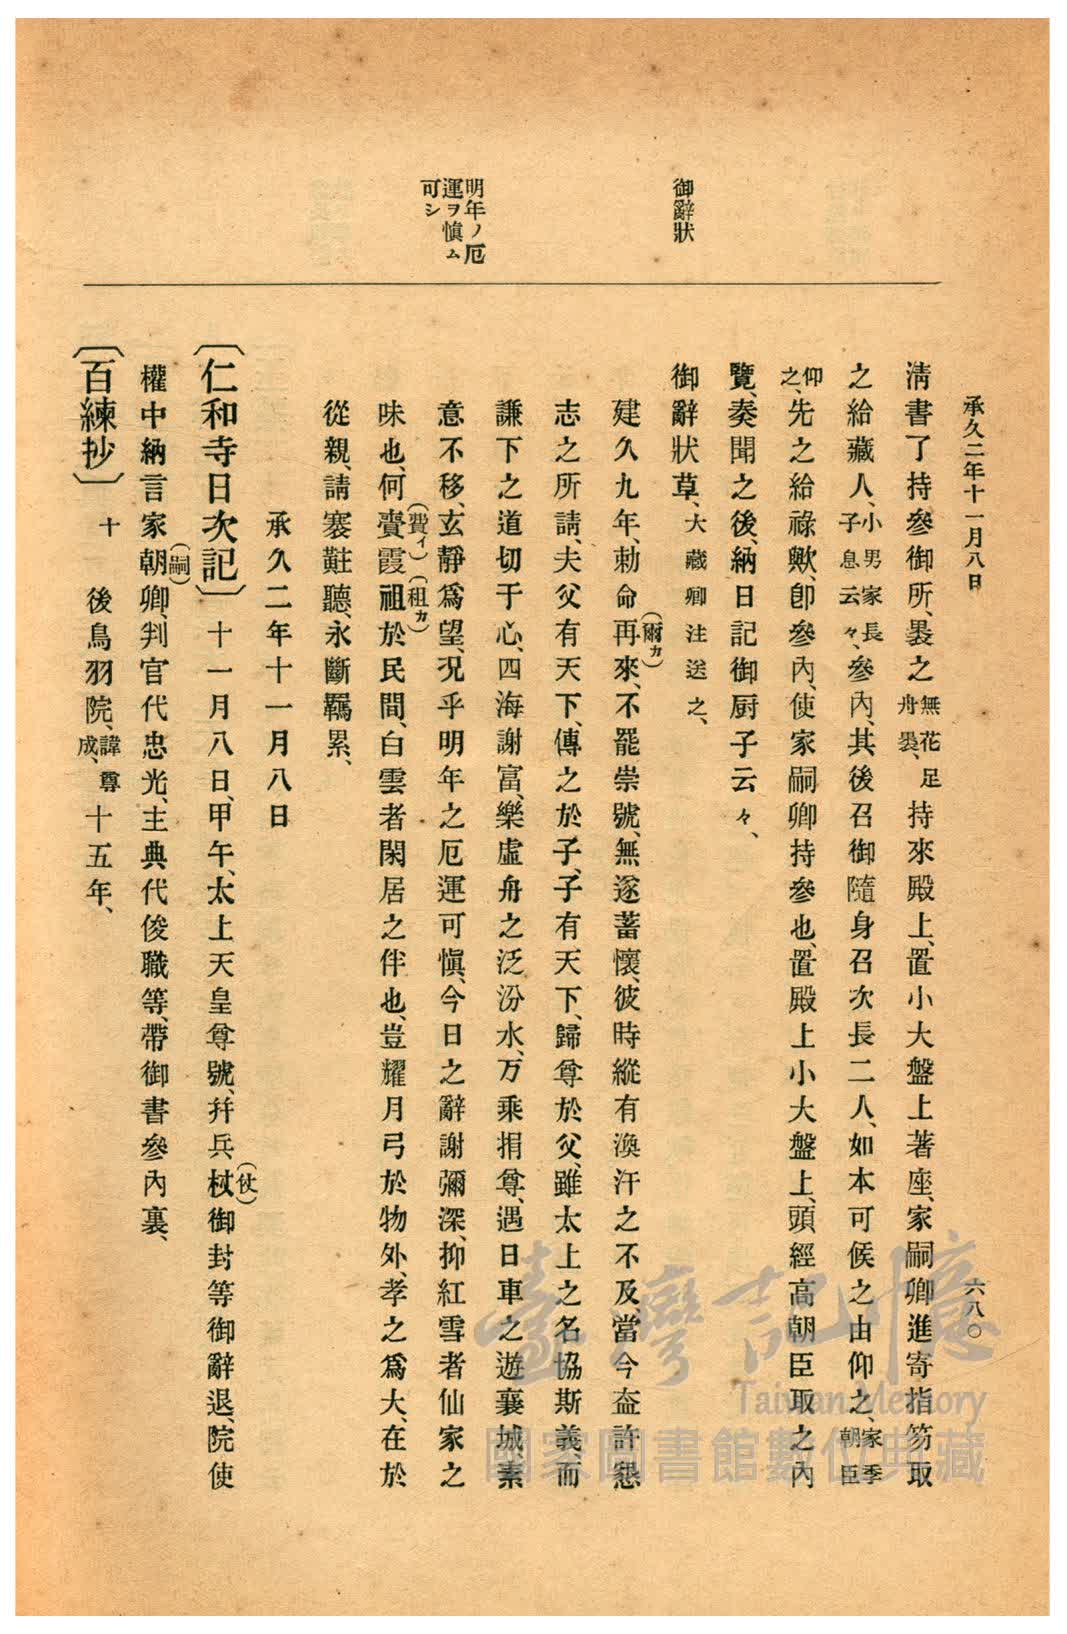 承久二年十一月八日
六八〇
御辭狀
明年ノ厄
運ヲ愼ム
可シ
淸書了持參御所、㠯之無花足舟㠯、持來殿上、置小大盤上著座、家嗣卿進寄指笏取
之給藏人、小男家長子息云々、參內、其後召御隨身召次長二人、如本可候之由仰之、家季朝臣
仰之、先之給祿歟、卽參內、使家嗣卿持參也、置殿上小大盤上、頭經高朝臣取之內
覽、奏聞之後、納日記御厨子云々、
御辭狀草、大藏卿注送之、
建久九年、勅命再(爾カ)來、不罷崇號、無遂蓄懷、彼時縱有渙汗之不及、當今盍許懇
志之所請、夫父有天下、傳之於子、子有天下、歸尊於父、雖太上之名協斯義、而
謙下之道切于心、四海謝富、樂虛舟之泛汾水、万乘捐尊、遇日車之遊襄城、素
意不移、玄靜爲望、况乎明年之厄運可愼、今日之辭謝彌深、抑紅雪者仙家之
味也、何賷(費イ)霞祖(租カ)於民間、白雲者閑居之伴也、豈耀月弓於物外、孝之爲大、在於
從親、請褰黈聽、永斷羈累、
承久二年十一月八日
〔仁和寺日次記〕十一月八日、甲午、太上天皇尊號、幷兵杖(仗)御封等御辭退、院使
權中納言家朝(嗣)卿、判官代忠光、主典代俊職等、帶御書參內裏、
〔百練抄〕十 後鳥羽院、諱尊成、十五年、
臺灣記憶
Taiwan Memory
國家圖書館數位典藏